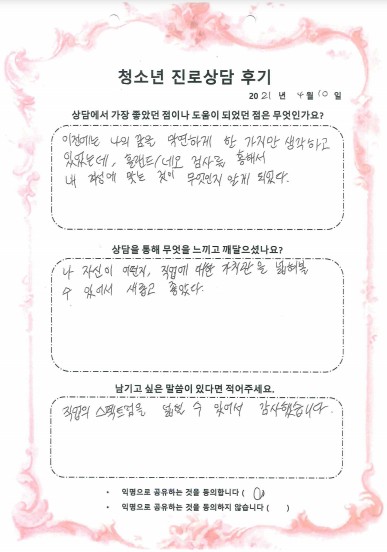 청소년 진로상담 후기
2021 년 4 월 10 일
상담에서 가장 좋았던 점이나 도움이 되었던 점은 무엇인가요?
이전에는 나의 꿈을 막연하게 한 가지만 생각하고
있었는데, 홀랜드/네오 검사를 통해서
내 적성에 맞는 것이 무엇인지 알게 되었다.
상담을 통해 무엇을 느끼고 깨달으셨나요?
나 자신이 어떤지, 직업에 대한 가치관을 넓혀볼
수 있어서 새롭고 좋았다.
남기고 싶은 말씀이 있다면 적어주세요.
직업의 스펙트럼을 넓힐 수 있어서 감사했습니다.
• 익명으로 공유하는 것을 동의합니다 ( O )
• 익명으로 공유하는 것을 동의하지 않습니다 ( )